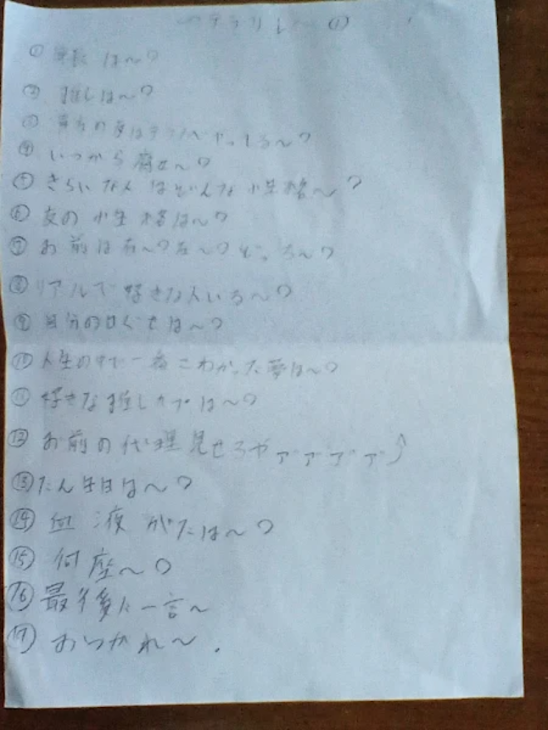 〜テラリレー①
① 身長は〜?
② 推しは〜?
③ 自分の友はテンヘやっしろ〜?
④ いつから腐女〜?
⑤ きらいな人はどんな性格〜?
⑥ 友の性格は〜?
⑦ お前は右〜?左〜?どっち〜?
⑧ リアルで好きな人いる〜?
⑨ 自分の口ぐせは〜?
⑩ 人生の中で一番こわかった夢は〜?
⑪ 好きな推しカプは〜?
⑫ お前の代理見せろやァァァァ
⑬ たん生日は〜?
⑭ 血液がたは〜?
⑮ 何座〜?
⑯ 最後に一言〜
⑰ おつかれ〜.